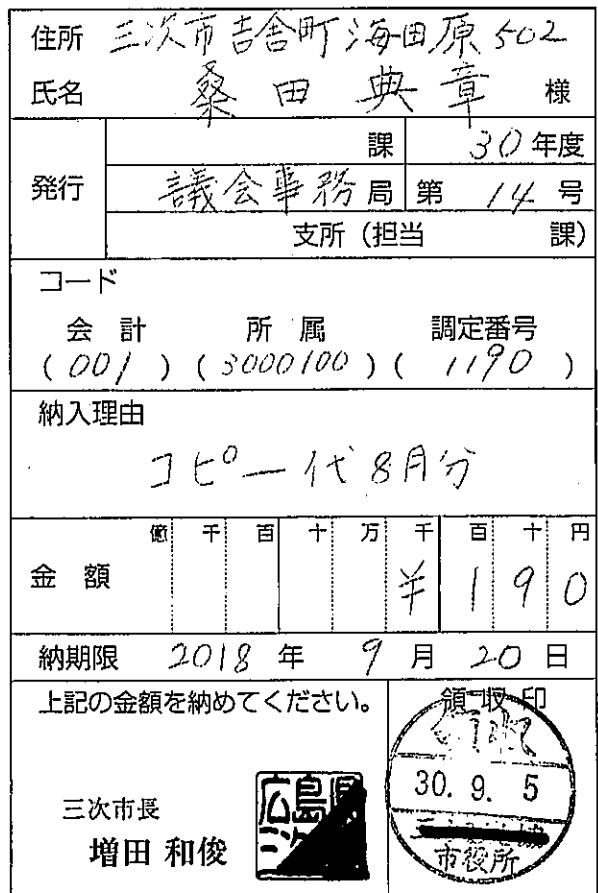 住所 三次市吉舎町海田原502
氏名 桑田典章 様
発行
課 30年度
議会事務局 第 14 号
支所(担当 課)
コード
会計 所属 調定番号
(001)(3000100)(1190)
納入理由
コピー代8月分
億 千 百 十 万 千 百 十 円
金額 ¥190
納期限 2018年 9月 20日
上記の金額を納めてください。
三次市長
増田 和俊
広島県
三次
領収印
領収
30.9.5
市役所